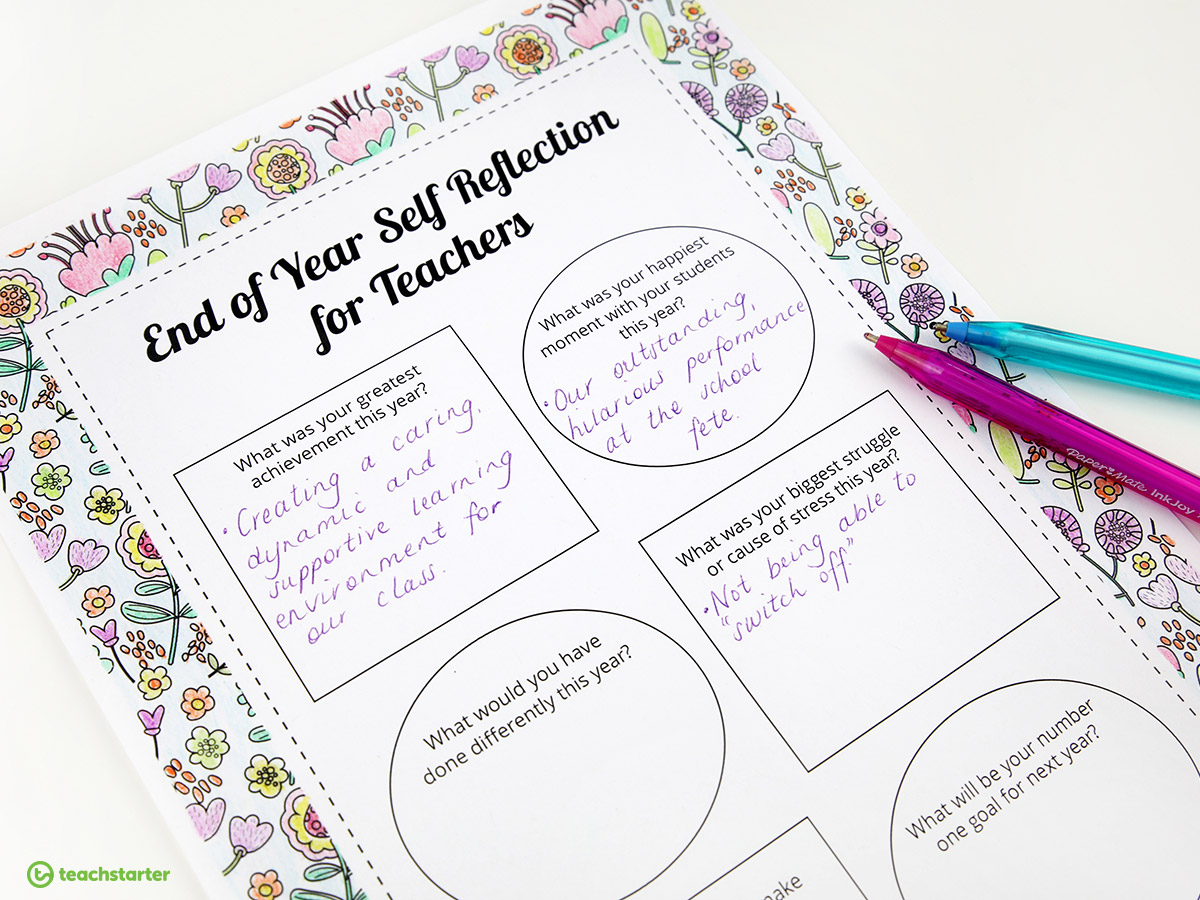 End of Year Self Reflection
for Teachers
What was your greatest
achievement this year?
• Creating a caring,
dynamic and
supportive learning
environment for
our class.
What was your happiest
moment with your students
this year?
• Our outstanding,
hilarious performance
at the school
fete.
What was your biggest struggle
or cause of stress this year?
• Not being able to
"switch off"
What would you have
done differently this year?
What will be your number
one goal for next year?
make
Paper Mate InkJoy
teachstarter